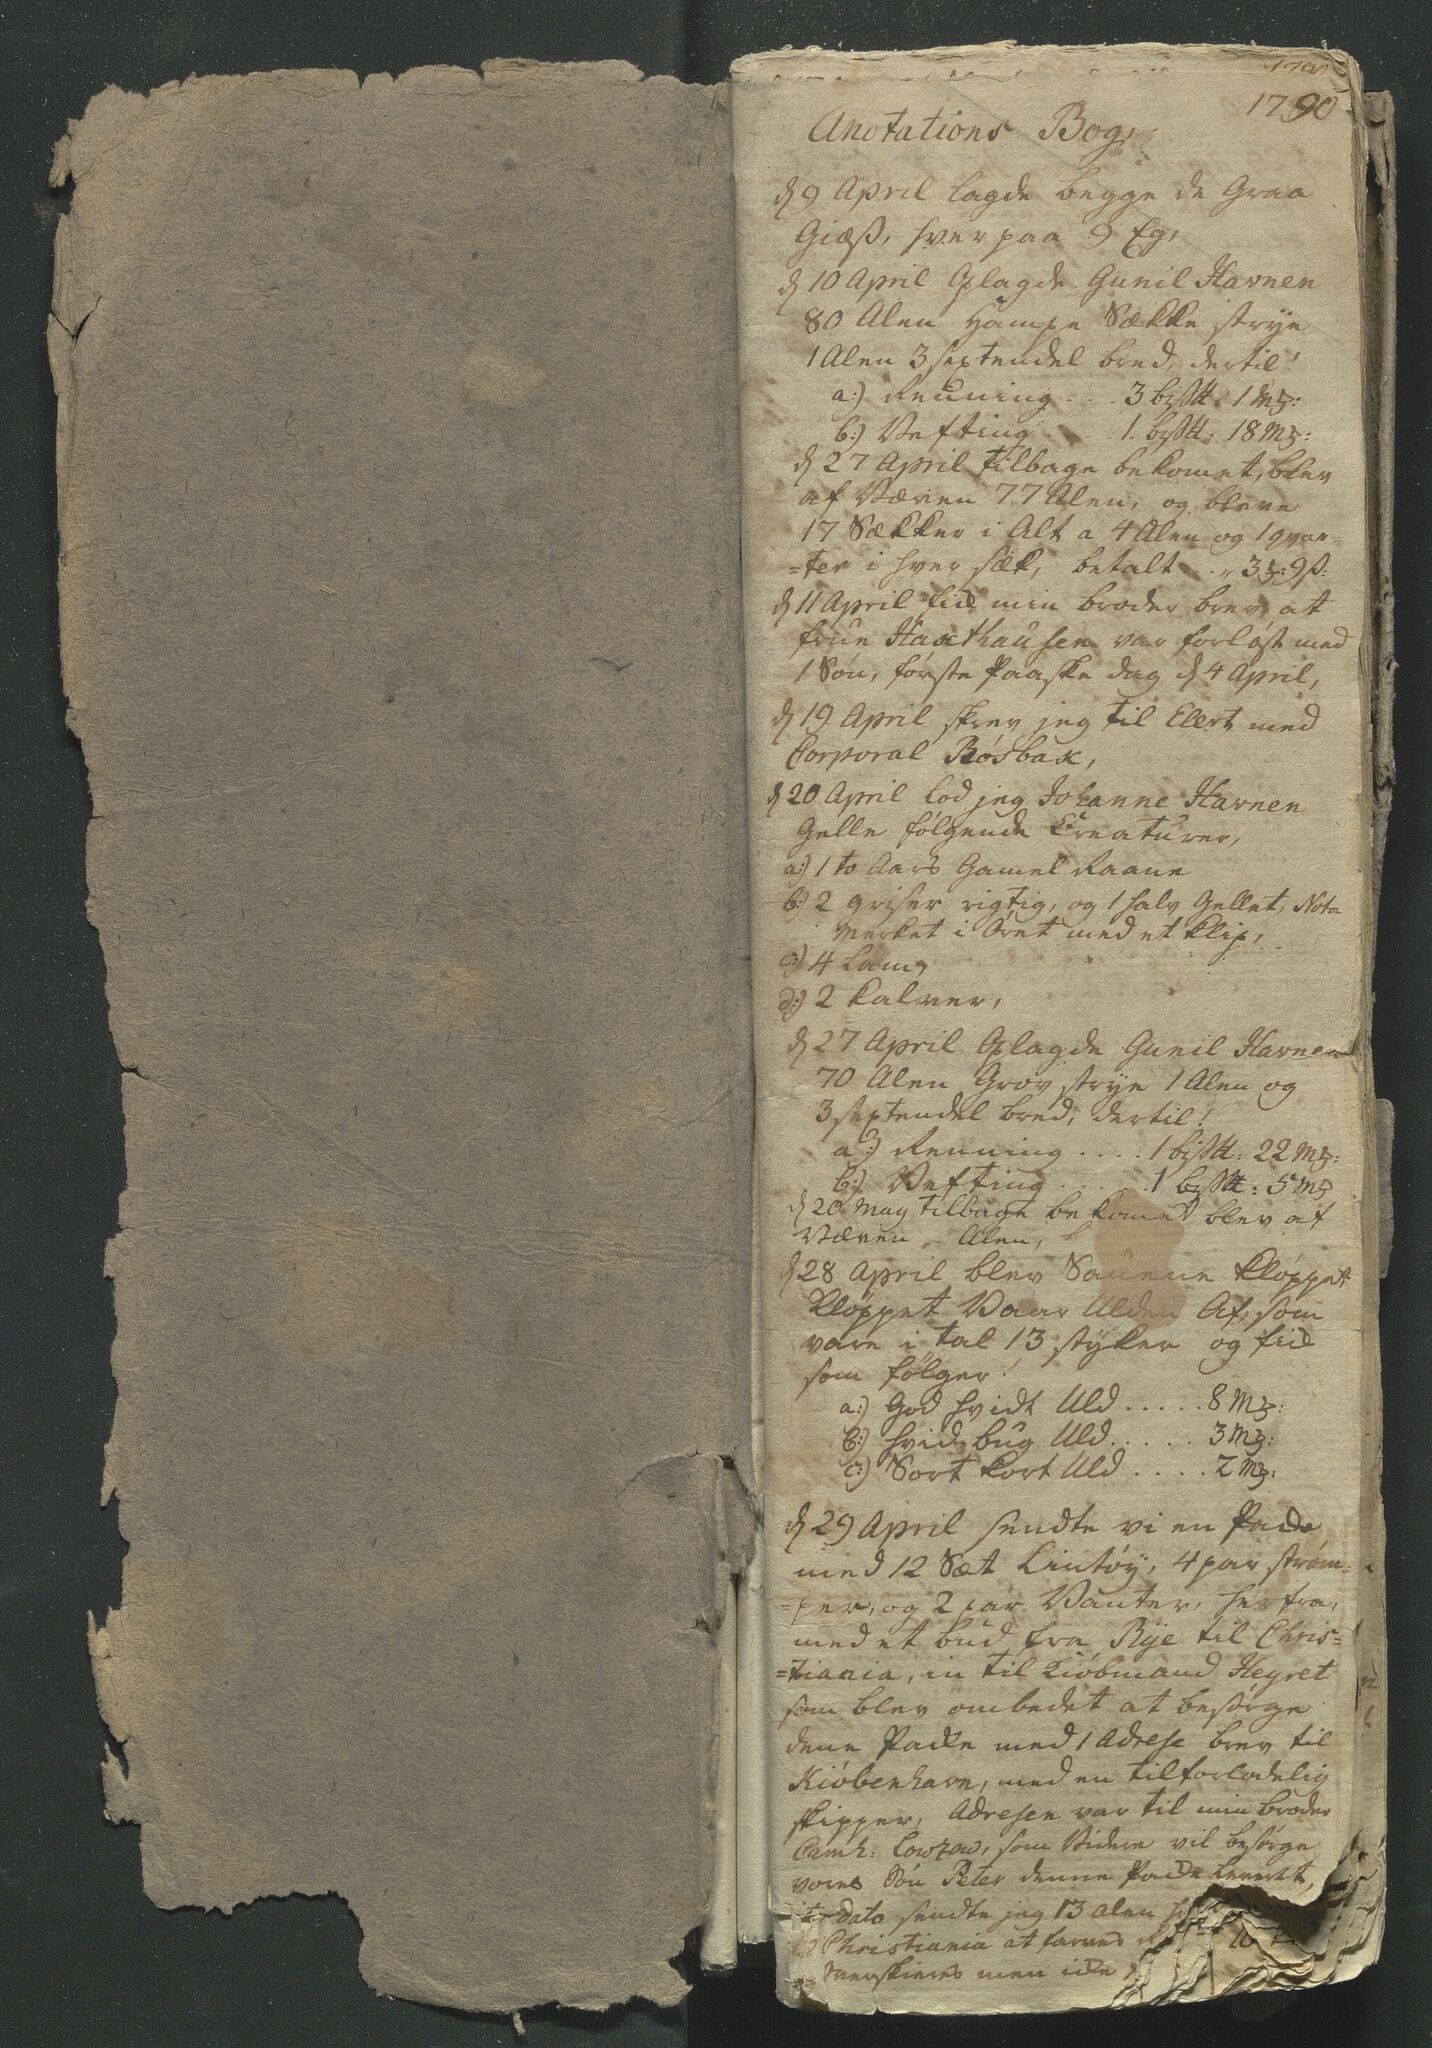 1790
Anotations Bog,
d 9 April lagde begge de Graa
Giæs, hver paa 9 Eg,
d 10 April Oplagde Gunil Havnen
80 Alen Hampe Sække strye
1 Alen 3 septendel bred, dertil!
a:) Renning . . . 3 bis℔. 1 Mk:
b:) Vefting . . . 1. bis℔: 18 Mk:
d 27 April tilbage bekomet, blev
af Væven 77 Alen, og bleve
17 Sækker i Alt a 4 Alen og 1 qvar=
=ter i hver sæk, betalt . . 3 : 9 ß:
d 11 April fik min broder brev, at
frue Haxthausen var forløst med
1 Søn, første Paaske dag d 4 April,
d 19 April skrev jeg til Elert med
Corporal Røsbak,
d 20 April lod jeg Johanne Havnen
Gelle følgende Creaturer,
a:) 1 to Aars Gamel Raane
b:) 2 griser rigtig, og 1 halv Gellet, Nota
merket i Øret med et klip,
c:) 4 Lam,
d:) 2 kalver,
d 27 April Oplagde Gunil Havnen
70 Alen Grov strye 1 Alen og
3 septendel bred, dertil!
a:) Renning . . . . 1 bis℔: 22 Mk:
b:) Vefting . . . . . 1 bis℔: 5 Mk
d 20 May tilbage bekomet blev af
Væven - Alen,
d 28 April blev Sauene kløppet,
Kløppet Vaar Ulden Af, som
vare i tal 13 styker og fik
som følger!
a:) God hvidt Uld . . . . . 8 Mk:
b:) hvid bug Uld . . . . . 3 Mk:
c:) Sort kort Uld . . . . 2 Mk:
d 29 April sendte vi en Pake
med 12 Sæt Lintøy, 4 par strøm=
=per, og 2 par Vanter, herfra,
med et bud fra Rye til Chris=
=tiania, in til Kiøbmand Heyret
som blev ombedet at besørge
dene Pakke med 1 Adrese brev til
Kiøbenhavn, med en tilforladelig
skipper, Adresen var til min broder
Camh: Lowzow, som Videre vil besørge
vores Søn Peter denne Pakke leveret,
dato sendte jeg 13 Alen
Christiania at farves
Overskieres men ikke